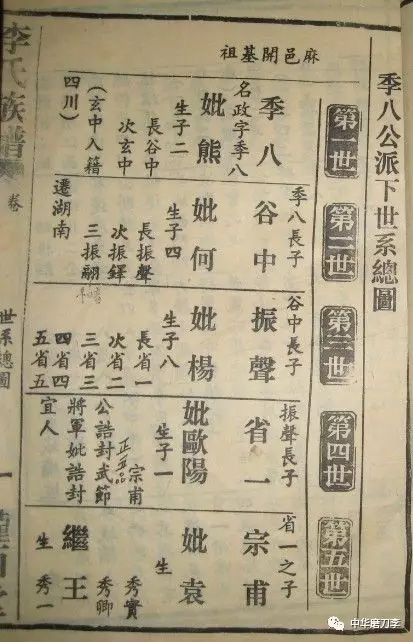 季八公派下世系總圖
麻邑開基祖
第一世
季八
名政字季八
妣熊
生子二
長谷中
次玄中
(玄中入籍
四川)
第二世
季八長子
谷中
妣何
生子四
長振聲
次振鐸
三振翮
遷湖南
第三世
谷中長子
振聲
妣楊
生子八
長省一
次省二
三省三
四省四
五省五
第四世
振聲長子
省一
妣歐陽
生子一
宗甫
正五品
公誥封武節
將軍妣誥封
宜人
第五世
省一之子
宗甫
妣袁
生
秀實
秀卿
繼王
生 秀一
李氏族譜
卷
世系總圖
一
中华磨刀李